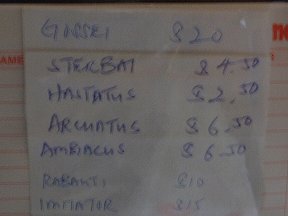 GIBBEI $20
STERBAI $4.50
HASTATUS $2.50
ARCUATUS $6.50
AMBIACUS $6.50
RABAUTI $10
IMITATOR $15